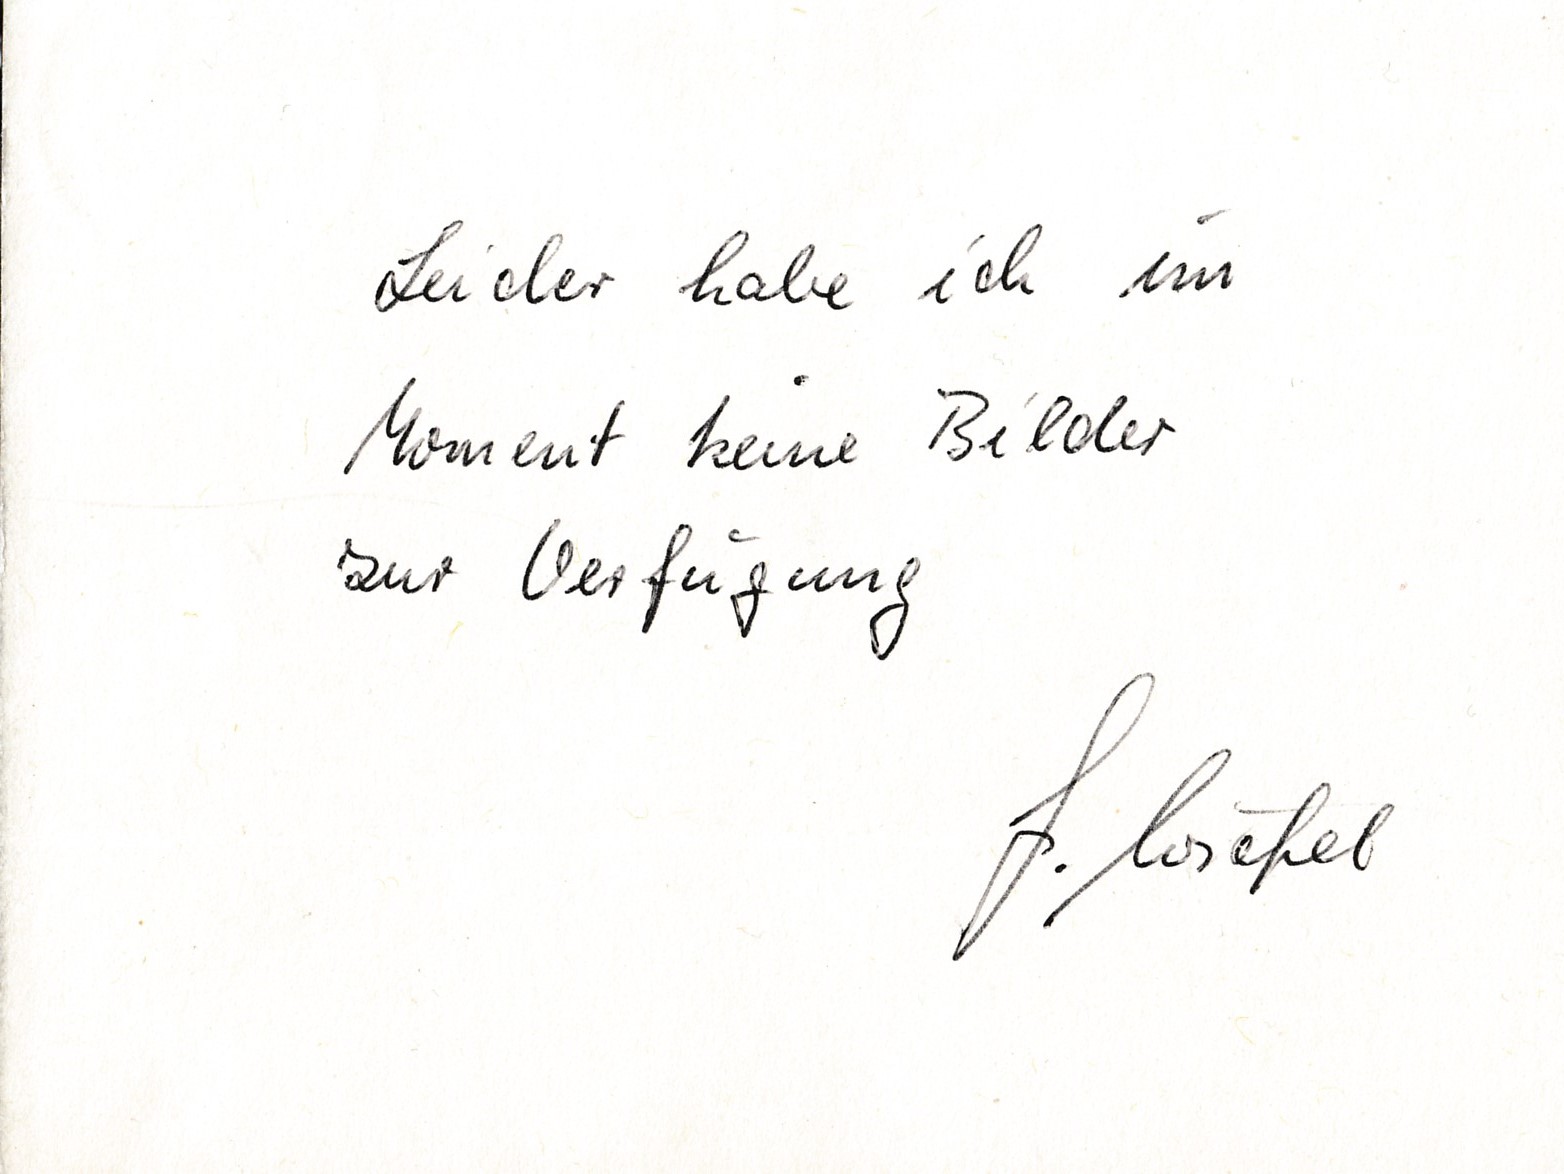 Leider habe ich im
Moment keine Bilder
zur Verfügung